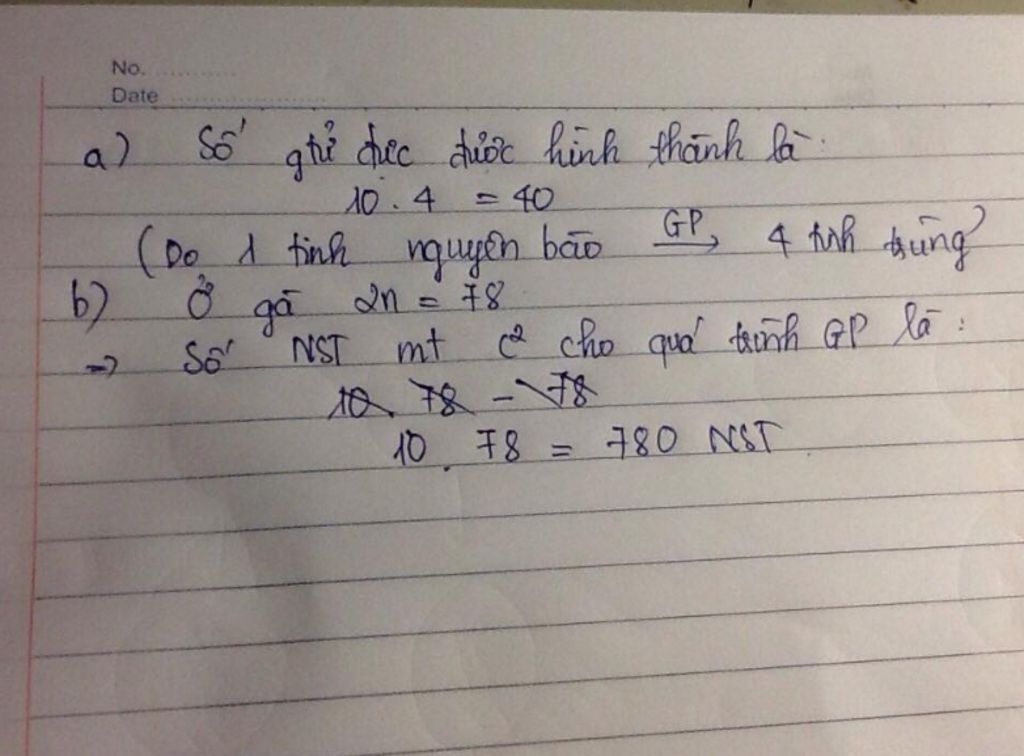 No. ............
Date ......................
a) Số gtử đực được hình thành là:
10 . 4 = 40
(Do 1 tinh nguyên bào GP→ 4 tinh trùng)
b) Ở gà 2n = 78
→ Số NST mt c² cho quá trình GP là :
10. 78 - 78
10 . 78 = 780 NST